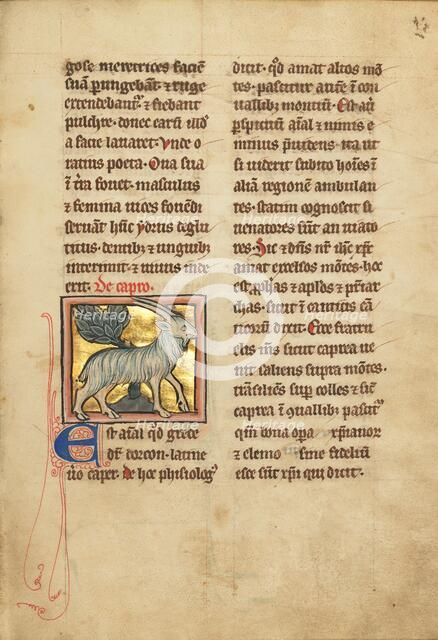 gose meretrices faciē
suā perungebant ⁊ ruge
extendebant᷑ ⁊ fiebant
pulchre · donec earū
a facie lavaret · Unde o
ratius poeta · Ova sua
ī t̄ra fovet · masculus
⁊ femina vices fovēdi
servant hūc ydrus deglu
titus · dentibꝫ ⁊ unguibꝫ
interimit · ⁊ vivus inde
exit · De capro ·
Est aīal qd̄ grece
dr̄ dorcon · latine
v̊o caper · de hoc phisiologꝰ
dicit · qd̄ amat altos mō
tes · pascitur autē ī con
vallibꝫ montiū · Est aūt
p̄spicuū aīal ⁊ nimis e
minus p̄videns · ita ut
si viderit subito hoīes ī
aliam regionē ambulan
tes · statim cognoscit si
venatores sūnt an viato
res · Sic ⁊ dn̄s nr̄ ihc̄ xp̄c
amat excelsos mōtes · hoc
est ꝓphās ⁊ apl̄os ⁊ pr̄iar
chas · sicut ī canticis can
ticorū dicit · Ecce fratru
elis m̄s sicut caprea ve
nit saliens supra mōtes ·
trāsiliēs sup̄ colles ⁊ sic̄
caprea ī ꝯvallibꝫ pascit᷑
qm̄ bona op̄a xp̄ianor
⁊ elemo sine fidelium
esce sūt xp̄i qui dicit ·
Heritage